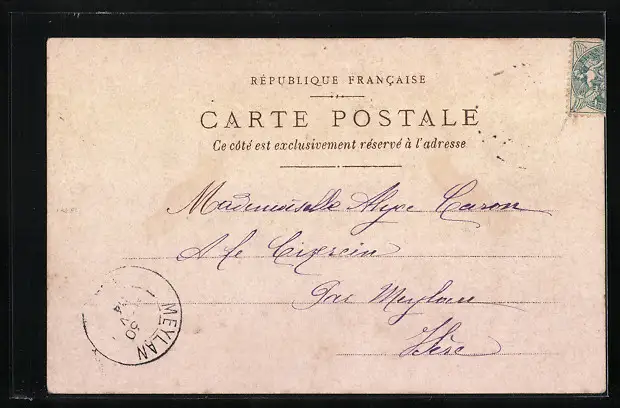 RÉPUBLIQUE FRANÇAISE
CARTE POSTALE
Ce côté est exclusivement réservé à l'adresse
Mademoiselle Alyce Caron
A le
Par Meylan
Isère
MEYLAN
30